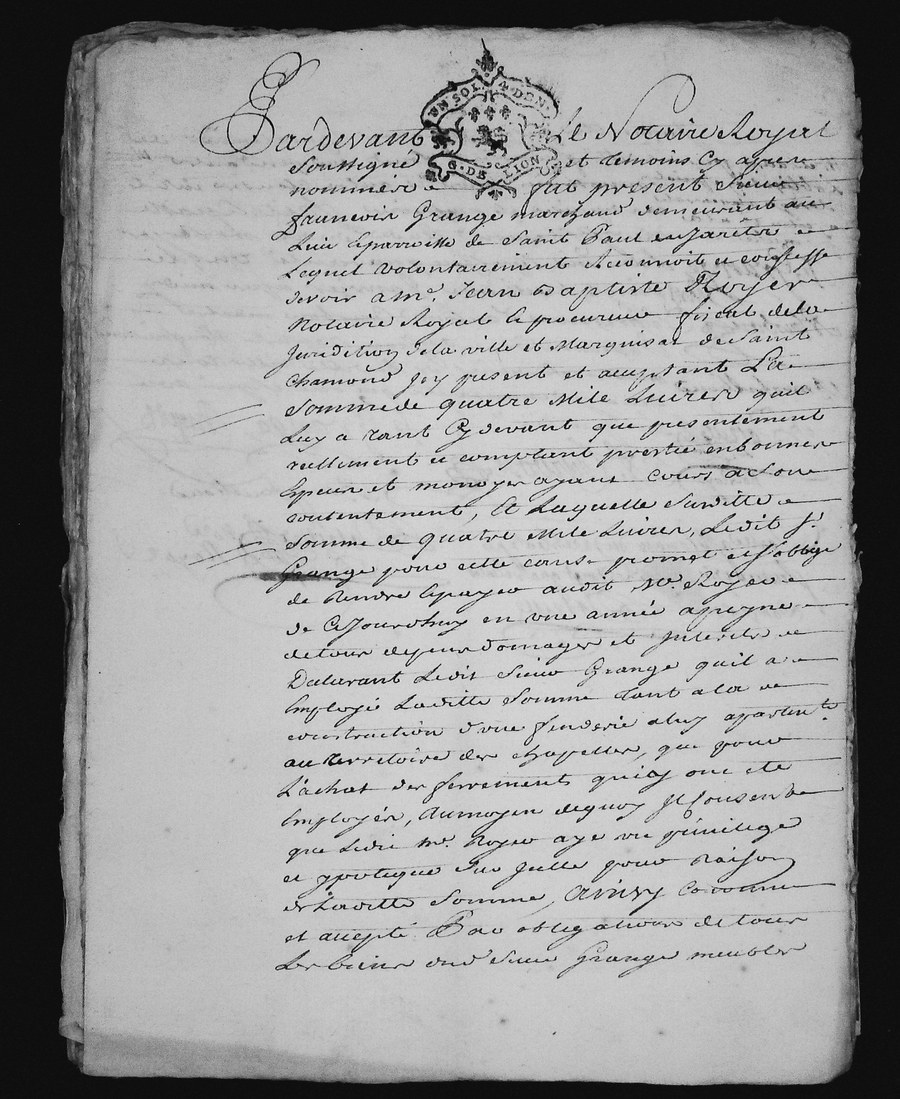 UN SOL. 4 DEN.
G. DE LION
Pardevant le Notaire Royal
Soussigné et temoins Cy apres
nommés fut present Sieur
francois Grange marchand demeurant au
Lieu & parroisse de Saint Paul en Jarêts
Lequel volontairement Reconnoit et confesse
devoir a me. Jean Baptiste Royer
Notaire Royal & procureur fiscal de la
Juridition de la ville et Marquisat de Saint
Chamond Jcy present et acceptant La
Somme de quatre Mile Livres quil
Luy a tant Cy devant que presentement
reellement et comptant prestée en bonnes
Especes et monoyes ayant Cours a Son
contentement, Et Laquelle Susditte
Somme de quatre Mile Livres, Ledit Sr.
Grange pour cette cause promet et s'oblige
de Rendre & payer audit Me. Royer
de Cejourdhuy en une année apeyne
de tous depens domages et Jnterets
Declarant Ledit Sieur Grange quil a
Employé Laditte Somme tant a la
construction d'une fenderie a luy apartente.
au territoire des chapelles, que pour
L'achat des ferrements quiy ont eté
Employés, Aumoyen dequoy Jl Consent
que Ledit me. Royer aye un privilege
et ypoteque Sur Jcelle pour Raison
de Laditte Somme, Ainsy Convenu
et accepté Par obligations de tous
Les biens dud. Sieur Grange meubles